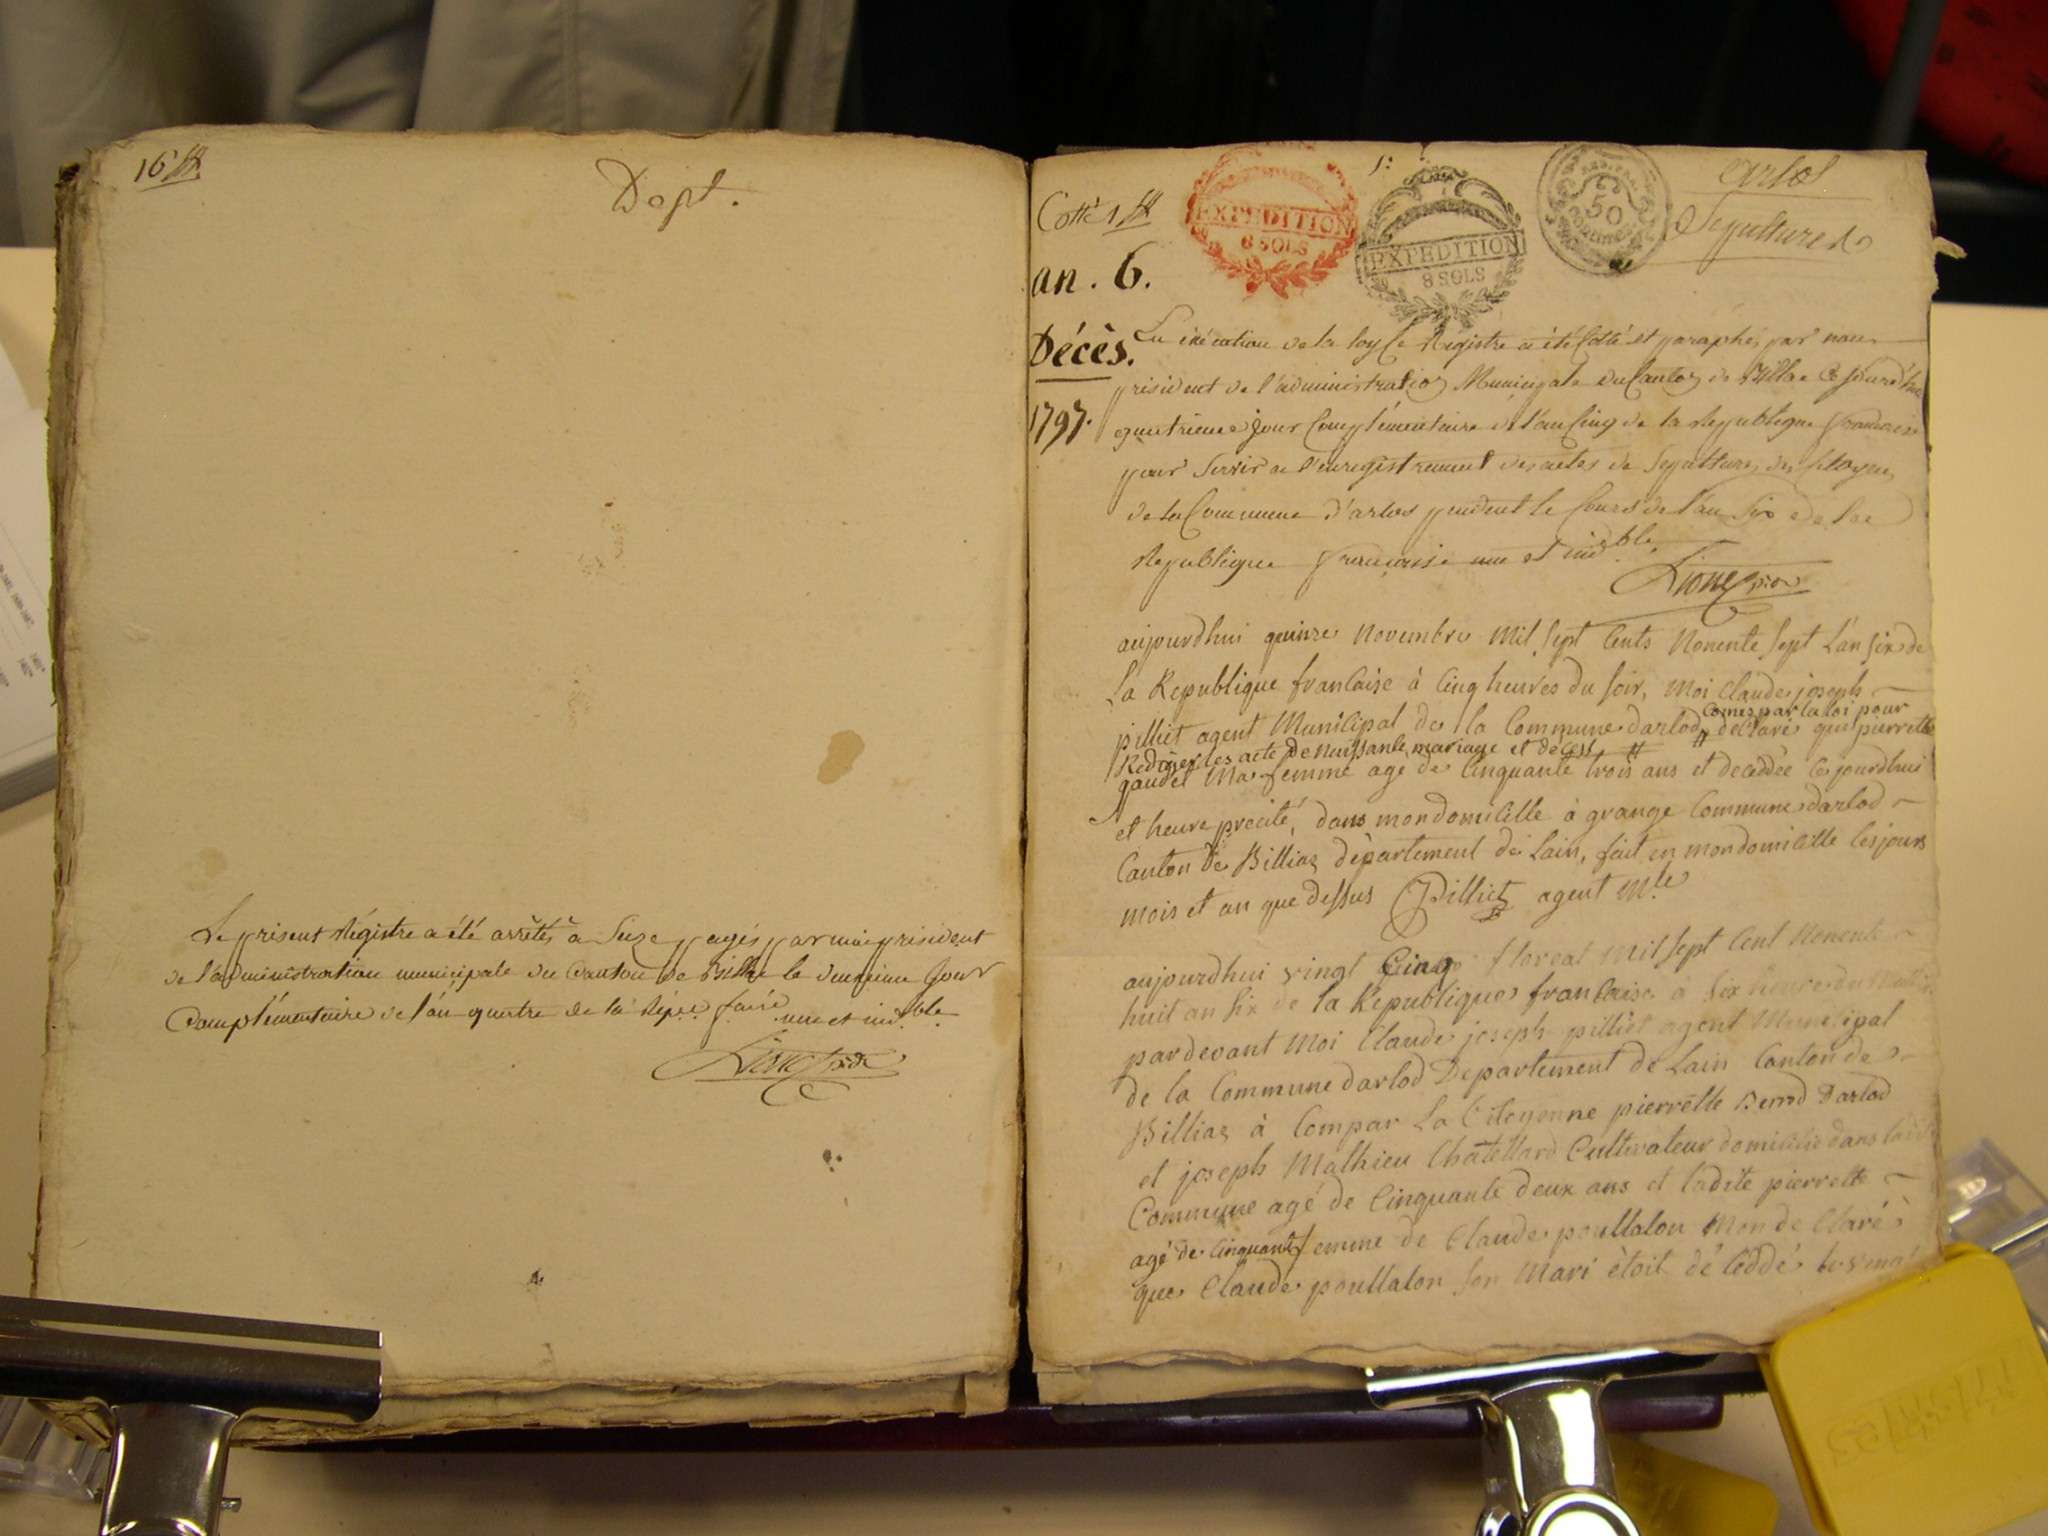 16
Dept.
Le present Régistre a été arrêtés à Seize pages par moi president
de l'administration municipale du Canton de Billia le deuxieme Jour
Complémentaire de l'an quatre de la Répue. une et indble
Cotté 1
EXPEDITION
8 SOLS
EXPEDITION
8 SOLS
50
arlod
Sepultures
an . 6.
Décès.
1797.
En éxécution de la loy Ce Régistre a été Cotté et paraphé, par nous
président de l'administration Municipale du Canton de Billia Ce jourd'hui
quatrieme jour Complémentaire de l'an Cinq de la République francaise
pour Servir a l'enregistrement des actes de Sepultures des Citoyens
de la Commune d'arlos pendent le Cours de l'an Six de la
République francaise une et indble.
aujourdhui quinze Novembre Mil Sept Cents Nonente Sept L'an Six de
La Republique francaise à Cinq heures du Soir, Moi Claude joseph
pilliet agent Municipal de la Commune darlod, declaré que pierrette
Comis par la loi pour
Rediger les acte de Naissance mariage et deces
gaudet Ma femme agé de Cinquante trois ans et deceddée Ce jourdhui
et heure precité, dans mon domicille à grange Commune darlod
Canton de Billiaz département de Lain, fait en mon domicille les jours
mois et an que dessus Pilliet agent Mle
aujourdhui vingt Cinq floreal Mil Sept Cent Nonente
huit an Six de la Republique francaise a Six heures du
pardevant Moi Claude joseph pilliet agent Municipal
de la Commune darlod Departement de Lain Canton de
Billiaz à Compar La Citoyenne pierrette Darlod
et joseph Mathieu Chatellard Cultivateur domicilié dans
Commune agé de Cinquante deux ans et ladite pierrette
agé de Cinquante femme de Claude poullalou Mon de Claré
que Claude poullalon Son Mari étoit de Ceddé